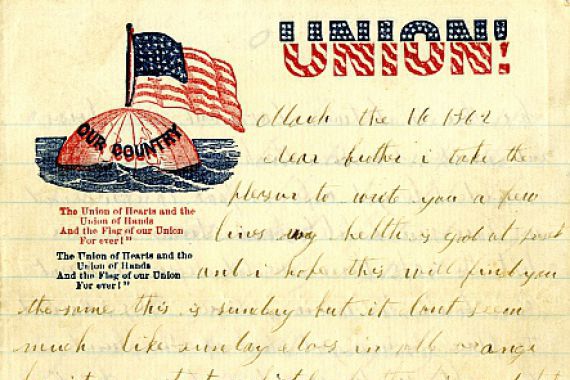 UNION!
OUR COUNTRY
March the 16 1862
dear brother i take the
plesur to write you a few
lines my helth is good at
The Union of Hearts and the
Union of Hands
And the Flag of our Union
For ever!"
The Union of Hearts and the
Union of Hands
And the Flag of our Union
For ever!"
and i hope this will find you
the same this is sunday but it dont seem
much like sunday